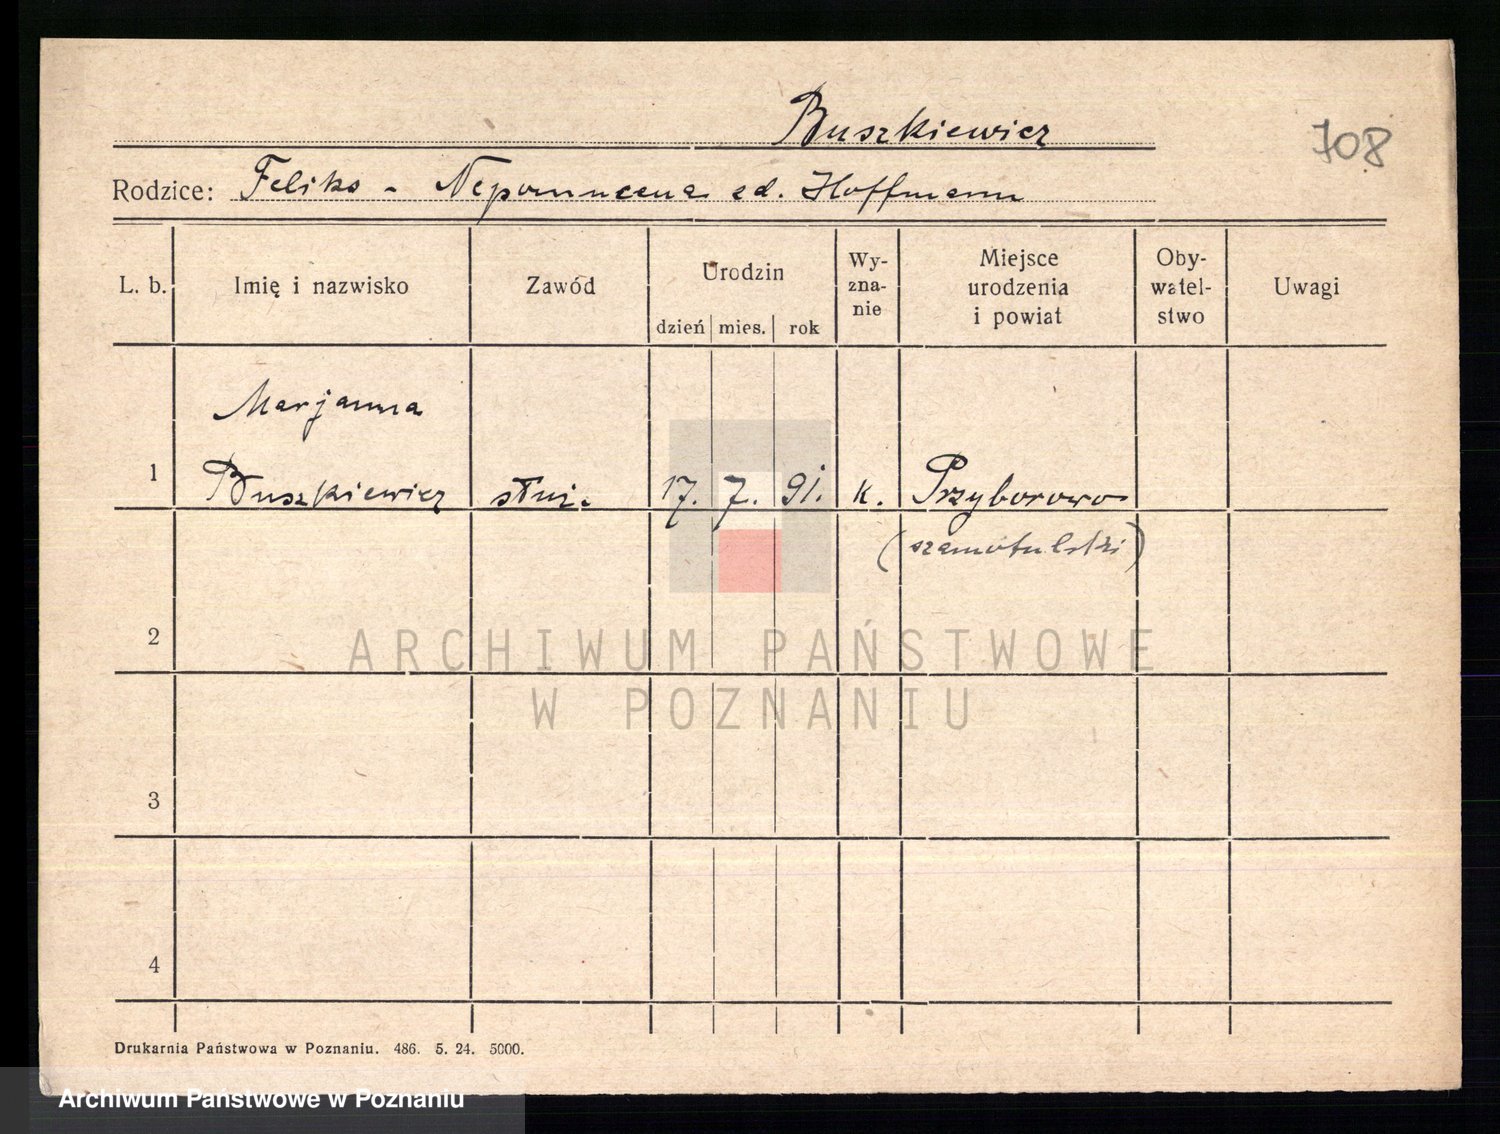 Buszkiewicz
708
Rodzice: Feliks - Nepomucena zd. Hoffmann
L. b.
Imię i nazwisko
Zawód
Urodzin
dzień mies. rok
Wy-
zna-
nie
Miejsce
urodzenia
i powiat
Oby-
watel-
stwo
Uwagi
Marjanna
1 Buszkiewicz służ. 17. 7. 91. k. Przyborowo
(szamotulski)
2
ARCHIWUM PAŃSTWOWE
W POZNANIU
3
4
Drukarnia Państwowa w Poznaniu. 486. 5. 24. 5000.
Archiwum Państwowe w Poznaniu